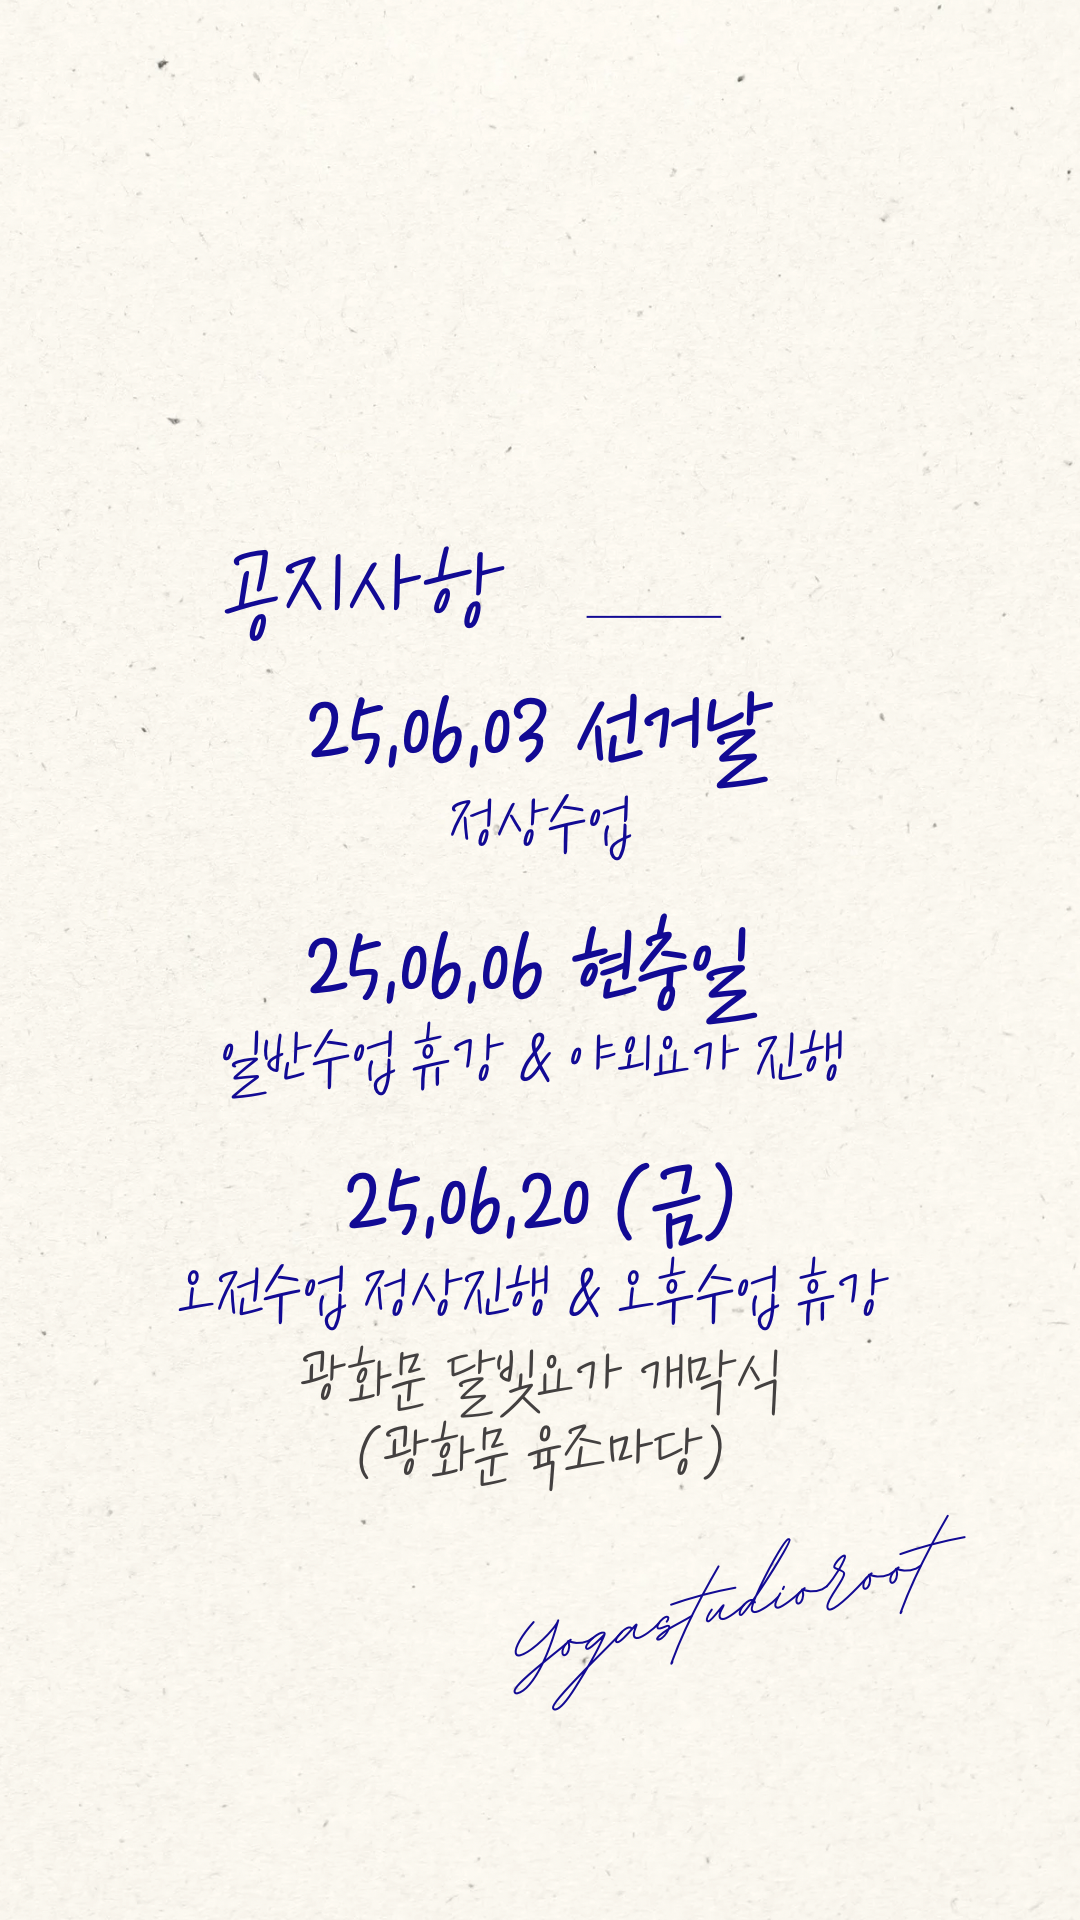 공지사항
25,06,03 선거날
정상수업
25,06,06 현충일
일반수업 휴강 & 야외요가 진행
25,06,20 (금)
오전수업 정상진행 & 오후수업 휴강
광화문 달빛요가 개막식
(광화문 육조마당)
yogastudioroot